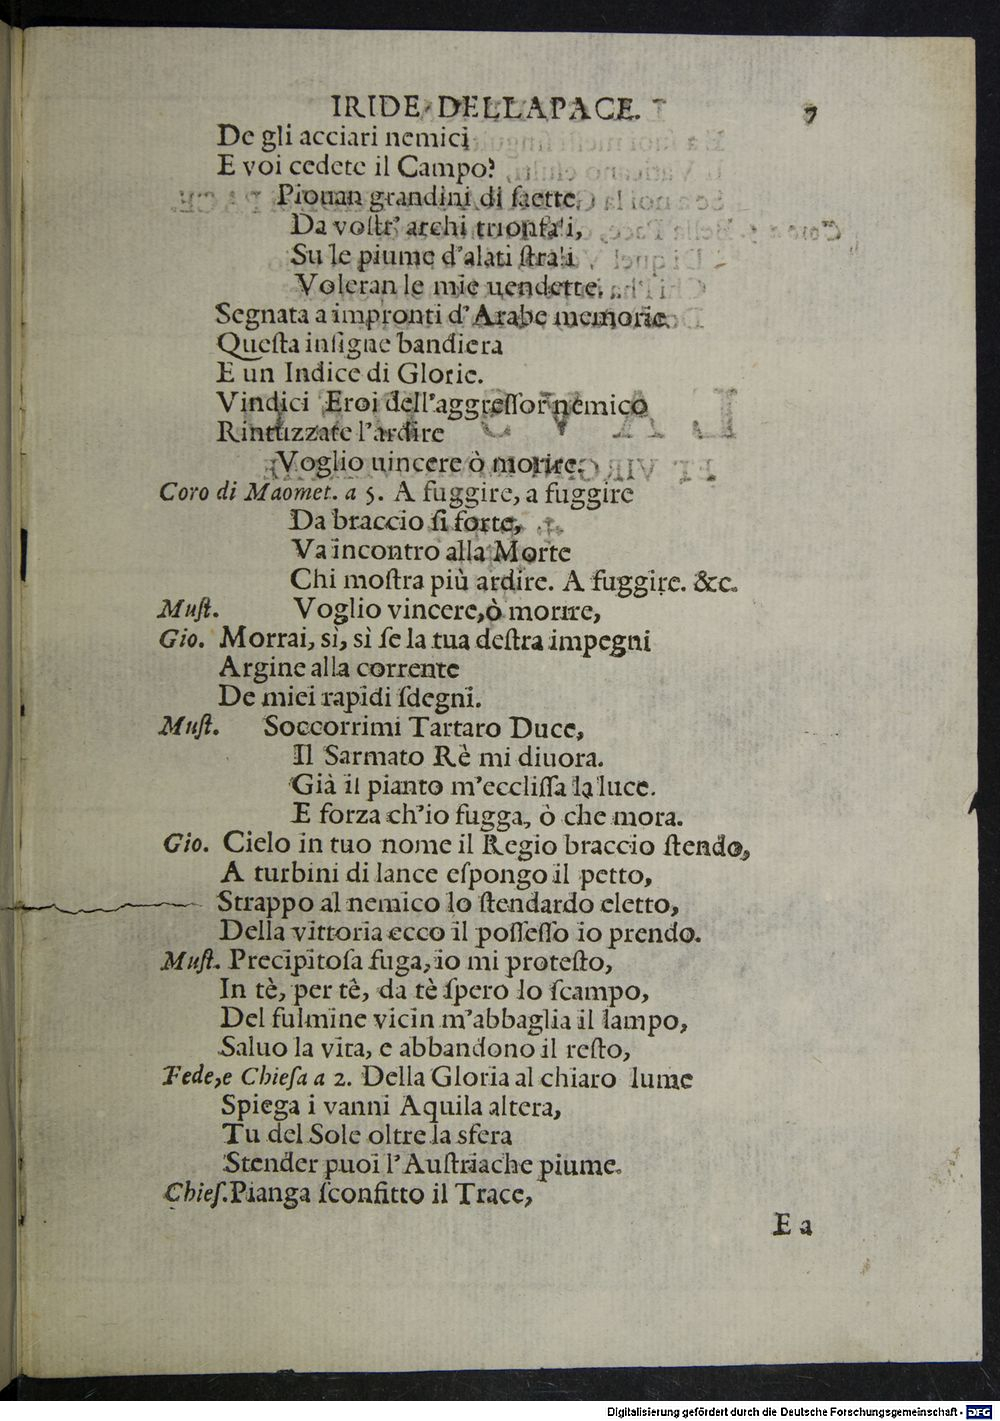 IRIDE DELLAPACE. 7
De gli acciari nemici
E voi cedete il Campo?
Piouan grandini di ſaette
Da voſtr' archi trionfali,
Su le piume d'alati ſtrali
Voleran le mie uendette.
Segnata a impronti d'Arabe memorie
Queſta inſigne bandiera
E un Indice di Glorie.
Vindici Eroi dell'aggreſſor nemico
Rintuzzate l'ardire
Voglio uincere ò morire.
Coro di Maomet. a 5. A fuggire, a fuggire
Da braccio ſi forte,
Va incontro alla Morte
Chi moſtra più ardire. A fuggire. &c.
Muſt. Voglio vincere, ò morire,
Gio. Morrai, sì, sì ſe la tua deſtra impegni
Argine alla corrente
De miei rapidi ſdegni.
Muſt. Soccorrimi Tartaro Duce,
Il Sarmato Rè mi diuora.
Già il pianto m'eccliſſa la luce.
E forza ch'io fugga, ò che mora.
Gio. Cielo in tuo nome il Regio braccio ſtendo,
A turbini di lance eſpongo il petto,
Strappo al nemico lo ſtendardo eletto,
Della vittoria ecco il poſſeſſo io prendo.
Muſt. Precipitoſa fuga, io mi proteſto,
In tè, per tè, da tè ſpero lo ſcampo,
Del fulmine vicin m'abbaglia il lampo,
Saluo la vita, e abbandono il reſto,
Fede, e Chieſa a 2. Della Gloria al chiaro lume
Spiega i vanni Aquila altera,
Tu del Sole oltre la sfera
Stender puoi l'Auſtriache piume.
Chieſ. Pianga ſconfitto il Trace,
E a
Digitalisierung gefördert durch die Deutsche Forschungsgemeinschaft - DFG